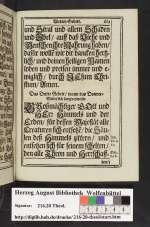 Wetter-Gebet.
und Stral und allem Schaden
und Übel / auff daß Viehe und
Menschen ihre Nahrung haben /
dafür wollen wir dir danken hertz-
lich / und deinen heiligen Namen
loben und preisen immer und e-
wiglich / durch JEsum Chri-
stum / Amen.
Das Dritte Gebet / wenn das Donner-
GRoßmächtiger GOtt und
HErr Himmels und der
Erden / für dessen Majestät alle
Creaturen sich entsetzen / die Säu-
len des Himmels zittern / und
entsetzen sich für seinem schelten /
dem alle Thron und Herrschafft
Herzog August Bibliothek Wolfenbüttel
Signatur: 218.20 Theol.
http://diglib.hab.de/drucke/218-20-theol/start.htm